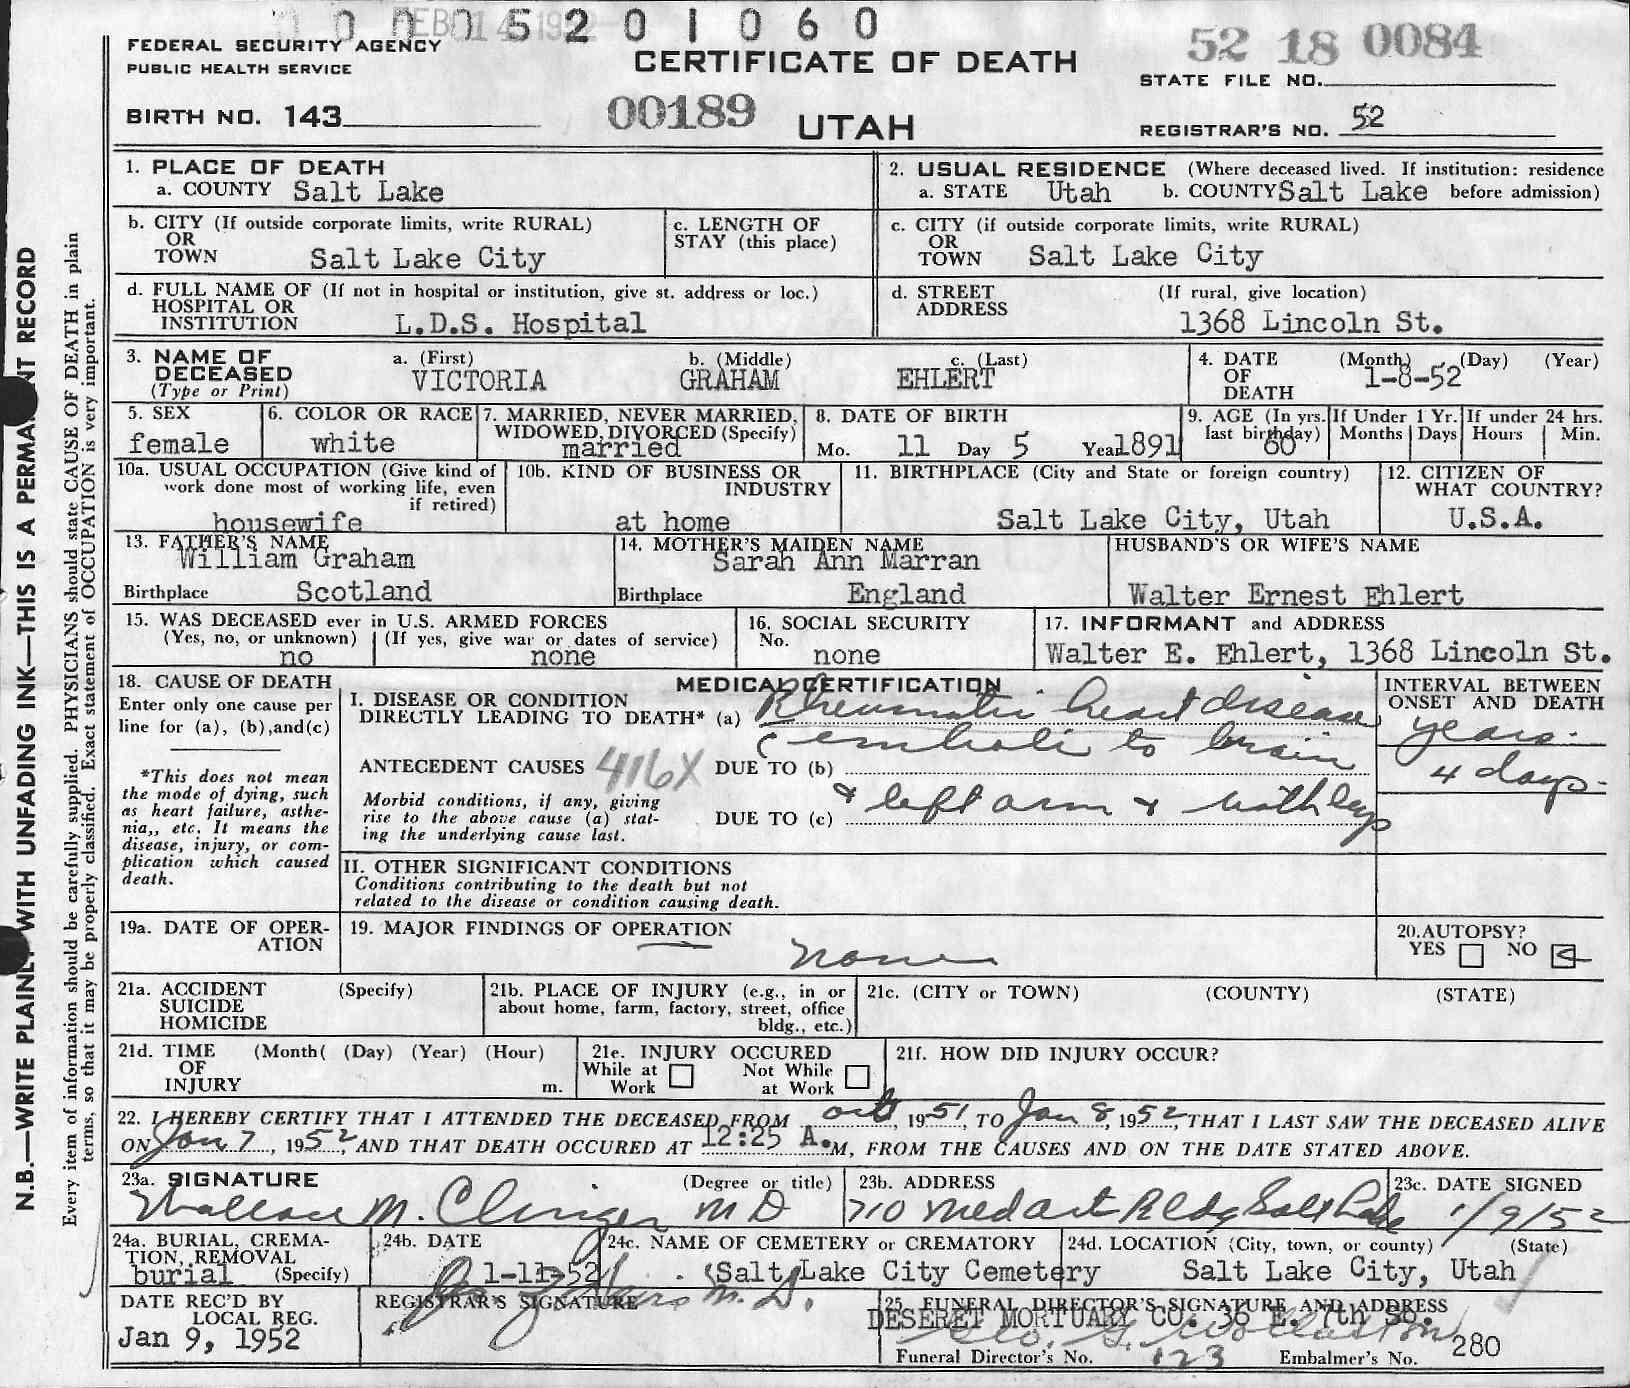 0 0 0 1 5 2 0 1 0 6 0
FEB 14 1952
FEDERAL SECURITY AGENCY
PUBLIC HEALTH SERVICE
CERTIFICATE OF DEATH
52 18 0084
STATE FILE NO.
BIRTH NO. 143
00189
UTAH
REGISTRAR'S NO. 52
N.B.—WRITE PLAINLY WITH UNFADING INK—THIS IS A PERMANENT RECORD
Every item of information should be carefully supplied. PHYSICIANS should state CAUSE OF DEATH in plain
terms, so that it may be properly classified. Exact statement of OCCUPATION is very important.
1. PLACE OF DEATH
a. COUNTY Salt Lake
2. USUAL RESIDENCE (Where deceased lived. If institution: residence
a. STATE Utah b. COUNTY Salt Lake before admission)
b. CITY (If outside corporate limits, write RURAL)
OR
TOWN Salt Lake City
c. LENGTH OF
STAY (this place)
c. CITY (if outside corporate limits, write RURAL)
OR
TOWN Salt Lake City
d. FULL NAME OF (If not in hospital or institution, give st. address or loc.)
HOSPITAL OR
INSTITUTION L.D.S. Hospital
d. STREET (If rural, give location)
ADDRESS
1368 Lincoln St.
3. NAME OF a. (First) b. (Middle) c. (Last)
DECEASED VICTORIA GRAHAM EHLERT
(Type or Print)
4. DATE (Month) (Day) (Year)
OF 1-8-52
DEATH
5. SEX
female
6. COLOR OR RACE
white
7. MARRIED, NEVER MARRIED,
WIDOWED, DIVORCED (Specify)
married
8. DATE OF BIRTH
Mo. 11 Day 5 Year 1891
9. AGE (In yrs.
last birthday) 60
If Under 1 Yr.
Months Days
If under 24 hrs.
Hours Min.
10a. USUAL OCCUPATION (Give kind of
work done most of working life, even
if retired)
housewife
10b. KIND OF BUSINESS OR
INDUSTRY
at home
11. BIRTHPLACE (City and State or foreign country)
Salt Lake City, Utah
12. CITIZEN OF
WHAT COUNTRY?
U.S.A.
13. FATHER'S NAME
William Graham
Birthplace Scotland
14. MOTHER'S MAIDEN NAME
Sarah Ann Marran
Birthplace England
HUSBAND'S OR WIFE'S NAME
Walter Ernest Ehlert
15. WAS DECEASED ever in U.S. ARMED FORCES
(Yes, no, or unknown) (If yes, give war or dates of service)
no none
16. SOCIAL SECURITY
No.
none
17. INFORMANT and ADDRESS
Walter E. Ehlert, 1368 Lincoln St.
18. CAUSE OF DEATH
Enter only one cause per
line for (a), (b), and (c)
*This does not mean
the mode of dying, such
as heart failure, asthe-
nia,, etc. It means the
disease, injury, or com-
plication which caused
death.
MEDICAL CERTIFICATION
I. DISEASE OR CONDITION
DIRECTLY LEADING TO DEATH* (a) Rheumatic heart disease
(emboli to brain
ANTECEDENT CAUSES 416X DUE TO (b)
& left arm & both legs
Morbid conditions, if any, giving
rise to the above cause (a) stat-
ing the underlying cause last.
DUE TO (c)
INTERVAL BETWEEN
ONSET AND DEATH
years.
4 days-
II. OTHER SIGNIFICANT CONDITIONS
Conditions contributing to the death but not
related to the disease or condition causing death.
19a. DATE OF OPER-
ATION
19. MAJOR FINDINGS OF OPERATION
none
20. AUTOPSY?
YES NO
21a. ACCIDENT (Specify)
SUICIDE
HOMICIDE
21b. PLACE OF INJURY (e.g., in or
about home, farm, factory, street, office
bldg., etc.)
21c. (CITY or TOWN) (COUNTY) (STATE)
21d. TIME (Month( (Day) (Year) (Hour)
OF
INJURY m.
21e. INJURY OCCURED
While at Not While
Work at Work
21f. HOW DID INJURY OCCUR?
22. I HEREBY CERTIFY THAT I ATTENDED THE DECEASED FROM Oct, 1951, TO Jan 8, 1952, THAT I LAST SAW THE DECEASED ALIVE
ON Jan 7, 1952, AND THAT DEATH OCCURED AT 12:25 A.M, FROM THE CAUSES AND ON THE DATE STATED ABOVE.
23a. SIGNATURE (Degree or title)
Wallace M. Clinger M D
23b. ADDRESS
710 Med Art Bldg Salt Lake
23c. DATE SIGNED
1/9/52
24a. BURIAL, CREMA-
TION, REMOVAL
burial (Specify)
24b. DATE
1-11-52
24c. NAME OF CEMETERY or CREMATORY
Salt Lake City Cemetery
24d. LOCATION (City, town, or county) (State)
Salt Lake City, Utah
DATE REC'D BY
LOCAL REG.
Jan 9, 1952
REGISTRAR'S SIGNATURE
M.D.
25. FUNERAL DIRECTOR'S SIGNATURE AND ADDRESS
DESERET MORTUARY CO. 36 E. 7th So.
Funeral Director's No. 123 Embalmer's No. 280